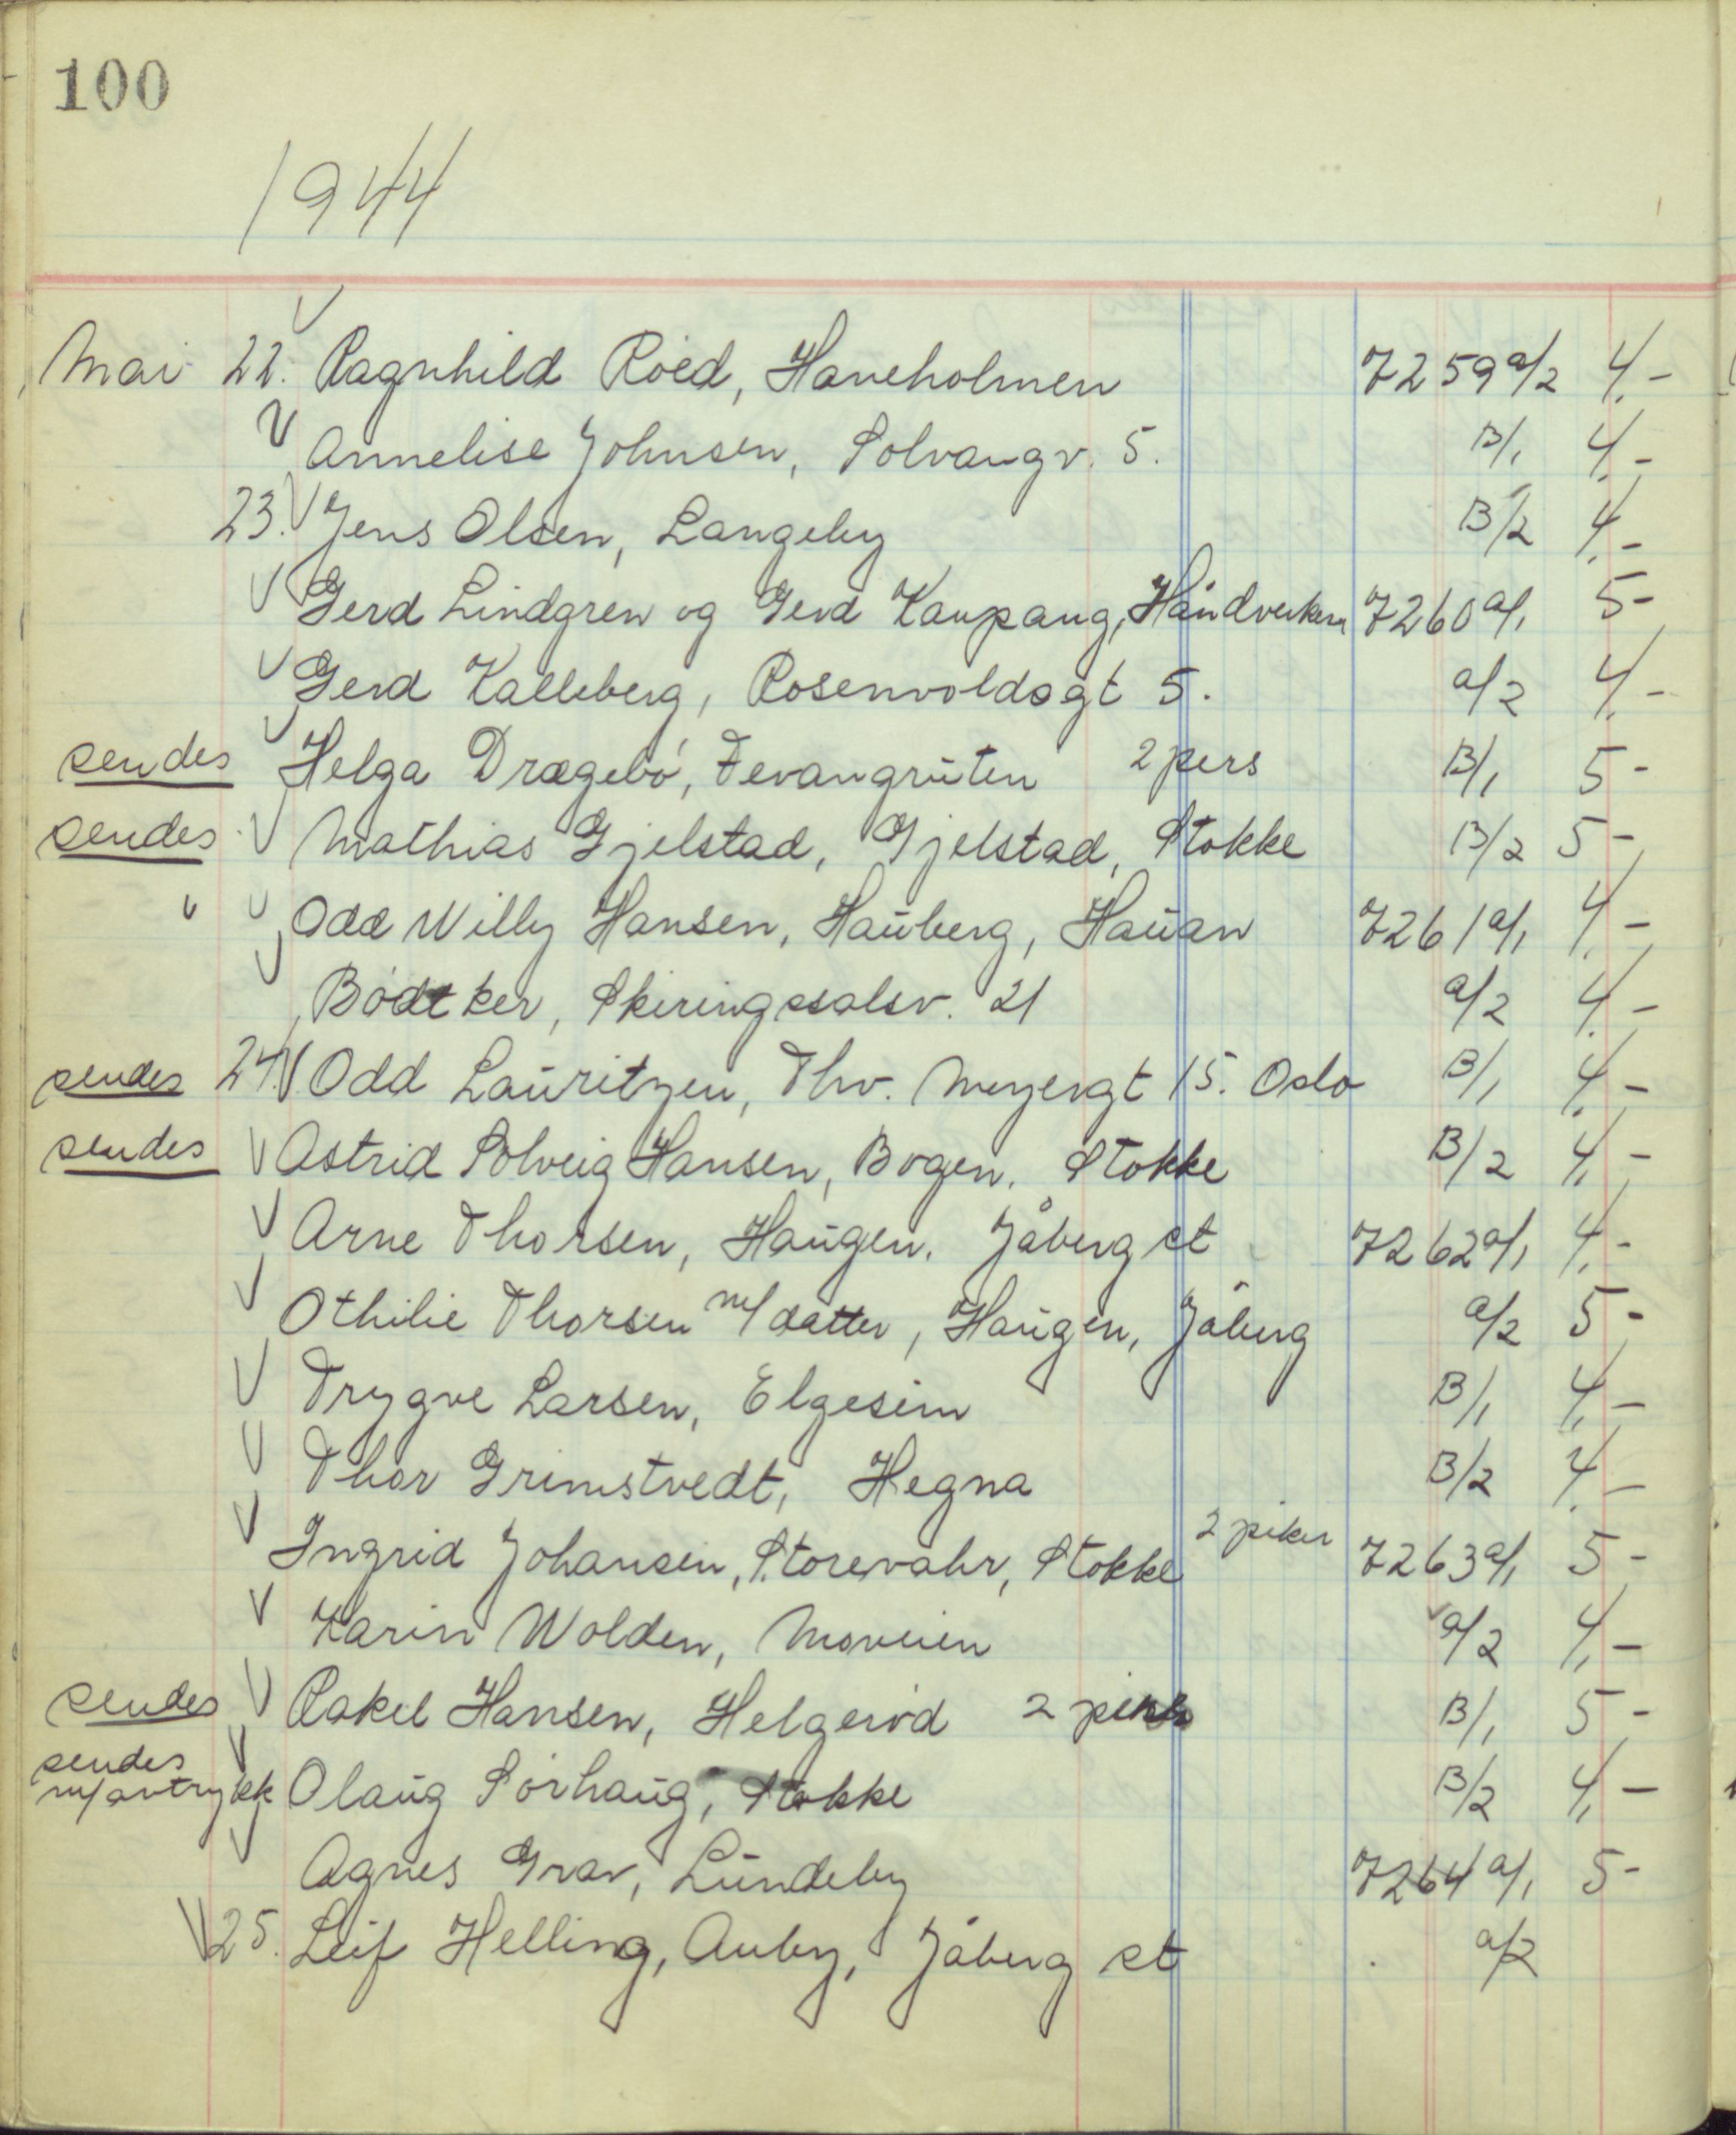 100
1944
Mai 22. V Ragnhild Röed, Haneholmen 7259 a/2 4,-
V Annelise Johnsen, Solvangv. 5. B/1 4,-
23. V Jens Olsen, Langeby B/2 4,-
V Gerd Lindgren og Gerd Kaupang, Håndverkeren 7260 a/1 5-
V Gerd Kalleberg, Rosenvoldsgt 5. a/2 4,-
sendes V Helga Drægebö, Fevangrūten 2 pers B/1 5-
sendes V Mathias Gjelstad, Gjelstad, Stokke B/2 5-
" V Odd Willy Hansen, Haūberg, Haūan 7261 a/1 4,-
V Bödtker, Skiringssalsv. 21 a/2 4,-
sendes 24. V Odd Laūritzen, Thv. Meyersgt 15. Oslo B/1 4,-
sendes V Astrid Solveig Hansen, Bogen, Stokke B/2 4,-
V Arne Thorsen, Haūgen, Jåberg st 7262 a/1 4,-
V Othilie Thorsen m/datter, Haūgen, Jåberg a/2 5-
V Trygve Larsen, Elgesem B/1 4,-
V Thor Grimstvedt, Hegna B/2 4,-
V Ingrid Johansen, Storevahr, Stokke 2 piker 7263 a/1 5-
V Karin Wolden, Moveien a/2 4,-
sendes V Rakel Hansen, Helgeröd 2 piker B/1 5-
sendes m/avtrykk V Olaūg Sörhaūg, Stokke B/2 4,-
V Agnes Grav, Lūndeby 7264 a/1 5-
V 25. Leif Helling, Auby, Jåberg st a/2